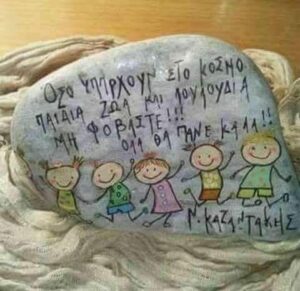 ΟΣΟ ΥΠΑΡΧΟΥΝ ΣΤΟ ΚΟΣΜΟ
ΠΑΙΔΙΑ ΖΩΑ ΚΑΙ ΛΟΥΛΟΥΔΙΑ
ΜΗ ΦΟΒΑΣΤΕ!!!
ΟΛΑ ΘΑ ΠΑΝΕ ΚΑΛΑ!!
Ν. ΚΑΖΑΝΤΑΚΗΣ